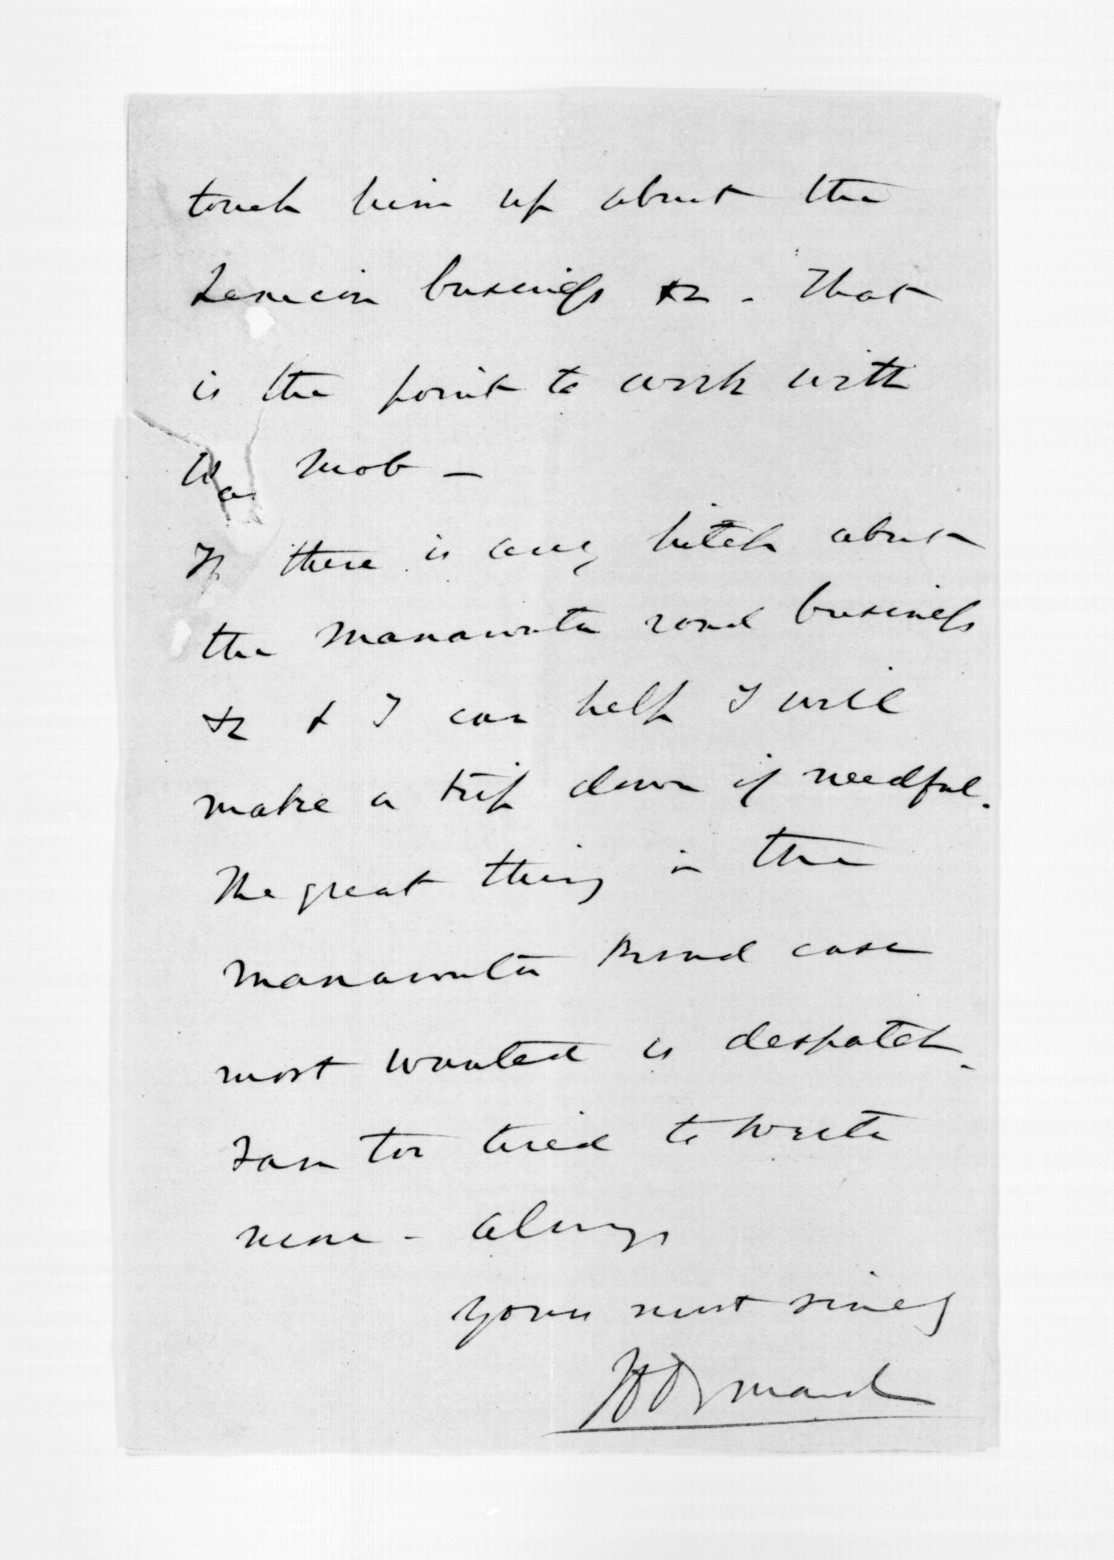 touch him up about the
business &c. That
is the point to work with
mob —
If there is any hitch about
the Manawatu road business
&c & I can help I will
make a trip down if needful.
The great thing in the
Manawatu Road case
most wanted is despatch.
I am too tired to write
more - always
yours most sincely
JD Ormond